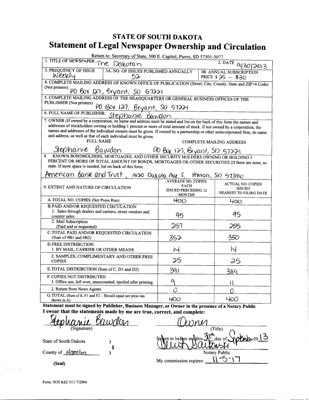 STATE OF SOUTH DAKOTA
Statement of Legal Newspaper Ownership and Circulation
Return to: Secretary of State, 500 E. Capitol, Pierre, SD 57501-5077
1. TITLE OF NEWSPAPER The Dakotan 2. DATE 9/30/2013
3. FREQUENCY OF ISSUE Weekly
3A. NO. OF ISSUES PUBLISHED ANNUALLY 52
3B. ANNUAL SUBSCRIPTION PRICE $25 - $30
4. COMPLETE MAILING ADDRESS OF KNOWN OFFICE OF PUBLICATION (Street, City, County, State and ZIP+4 Code)
(Not printers) PO Box 127, Bryant, SD 57221
5. COMPLETE MAILING ADDRESS OF THE HEADQUARTERS OR GENERAL BUSINESS OFFICES OF THE
PUBLISHER (Not printer) PO Box 127, Bryant, SD 57221
6. FULL NAME OF PUBLISHER: Stephanie Bawdon
7. OWNER (If owned by corporation, its name and address must be stated and list on the back of this form the names and
addresses of stockholders owning or holding 1 percent or more of total amount of stock. If not owned by a corporation, the
names and addresses of the individual owners must be given. If owned by a partnership or other unincorporated firm, its name
and address, as well as that of each individual must be given.
FULL NAME COMPLETE MAILING ADDRESS
Stephanie Bawdon PO Box 127, Bryant, SD 57221
8. KNOWN BONDHOLDERS, MORTGAGES, AND OTHER SECURITY HOLDERS OWNING OR HOLDING 1
PERCENT OR MORE OF TOTAL AMOUNT OF BONDS, MORTGAGES OR OTHER SECURITIES (If there are none, so
state. If more space is needed, list on back of this form.
American Bank and Trust, Dakota Ave S, Huron, SD 57350
9. EXTENT AND NATURE OF CIRCULATION
AVERAGE NO. COPIES EACH ISSUED PRECEDING 12 MONTHS
ACTUAL NO. COPIES ISSUED NEAREST TO FILING DATE
A. TOTAL NO. COPIES (Net Press Run) 400 400
B. PAID AND/OR REQUESTED CIRCULATION
1. Sales through dealers and carriers, street vendors and
counter sales. 95 95
2. Mail Subscription
(Paid and or requested) 257 255
C. TOTAL PAID AND/OR REQUESTED CIRCULATION
(Sum of 9B1 and 9B2) 352 350
D. FREE DISTRIBUTION
1. BY MAIL, CARRIER OR OTHER MEANS 14 14
2. SAMPLES, COMPLIMENTARY AND OTHER FREE
COPIES 25 25
E. TOTAL DISTRIBUTION (Sum of C, D1 and D2) 391 389
F. COPIES NOT DISTRIBUTED
1. Office use, left over, unaccounted, spoiled after printing 9 11
2. Return from News Agents 0 0
G. TOTAL (Sum of E, F1 and F2 - Should equal net press run
shown in A) 400 400
Statement must be signed by Publisher, Business Manager, or Owner in the presence of a Notary Public
I swear that the statements made by me are true, correct, and complete:
Stephanie Bawdon Owner
(Signature) (Title)
State of South Dakota )
County of Hamlin )
(Seal)
Sworn to before me this 30th day of September 2013
Notary Public
My commission expires: 11-5-17
Form: SOS REC 011 7/2004